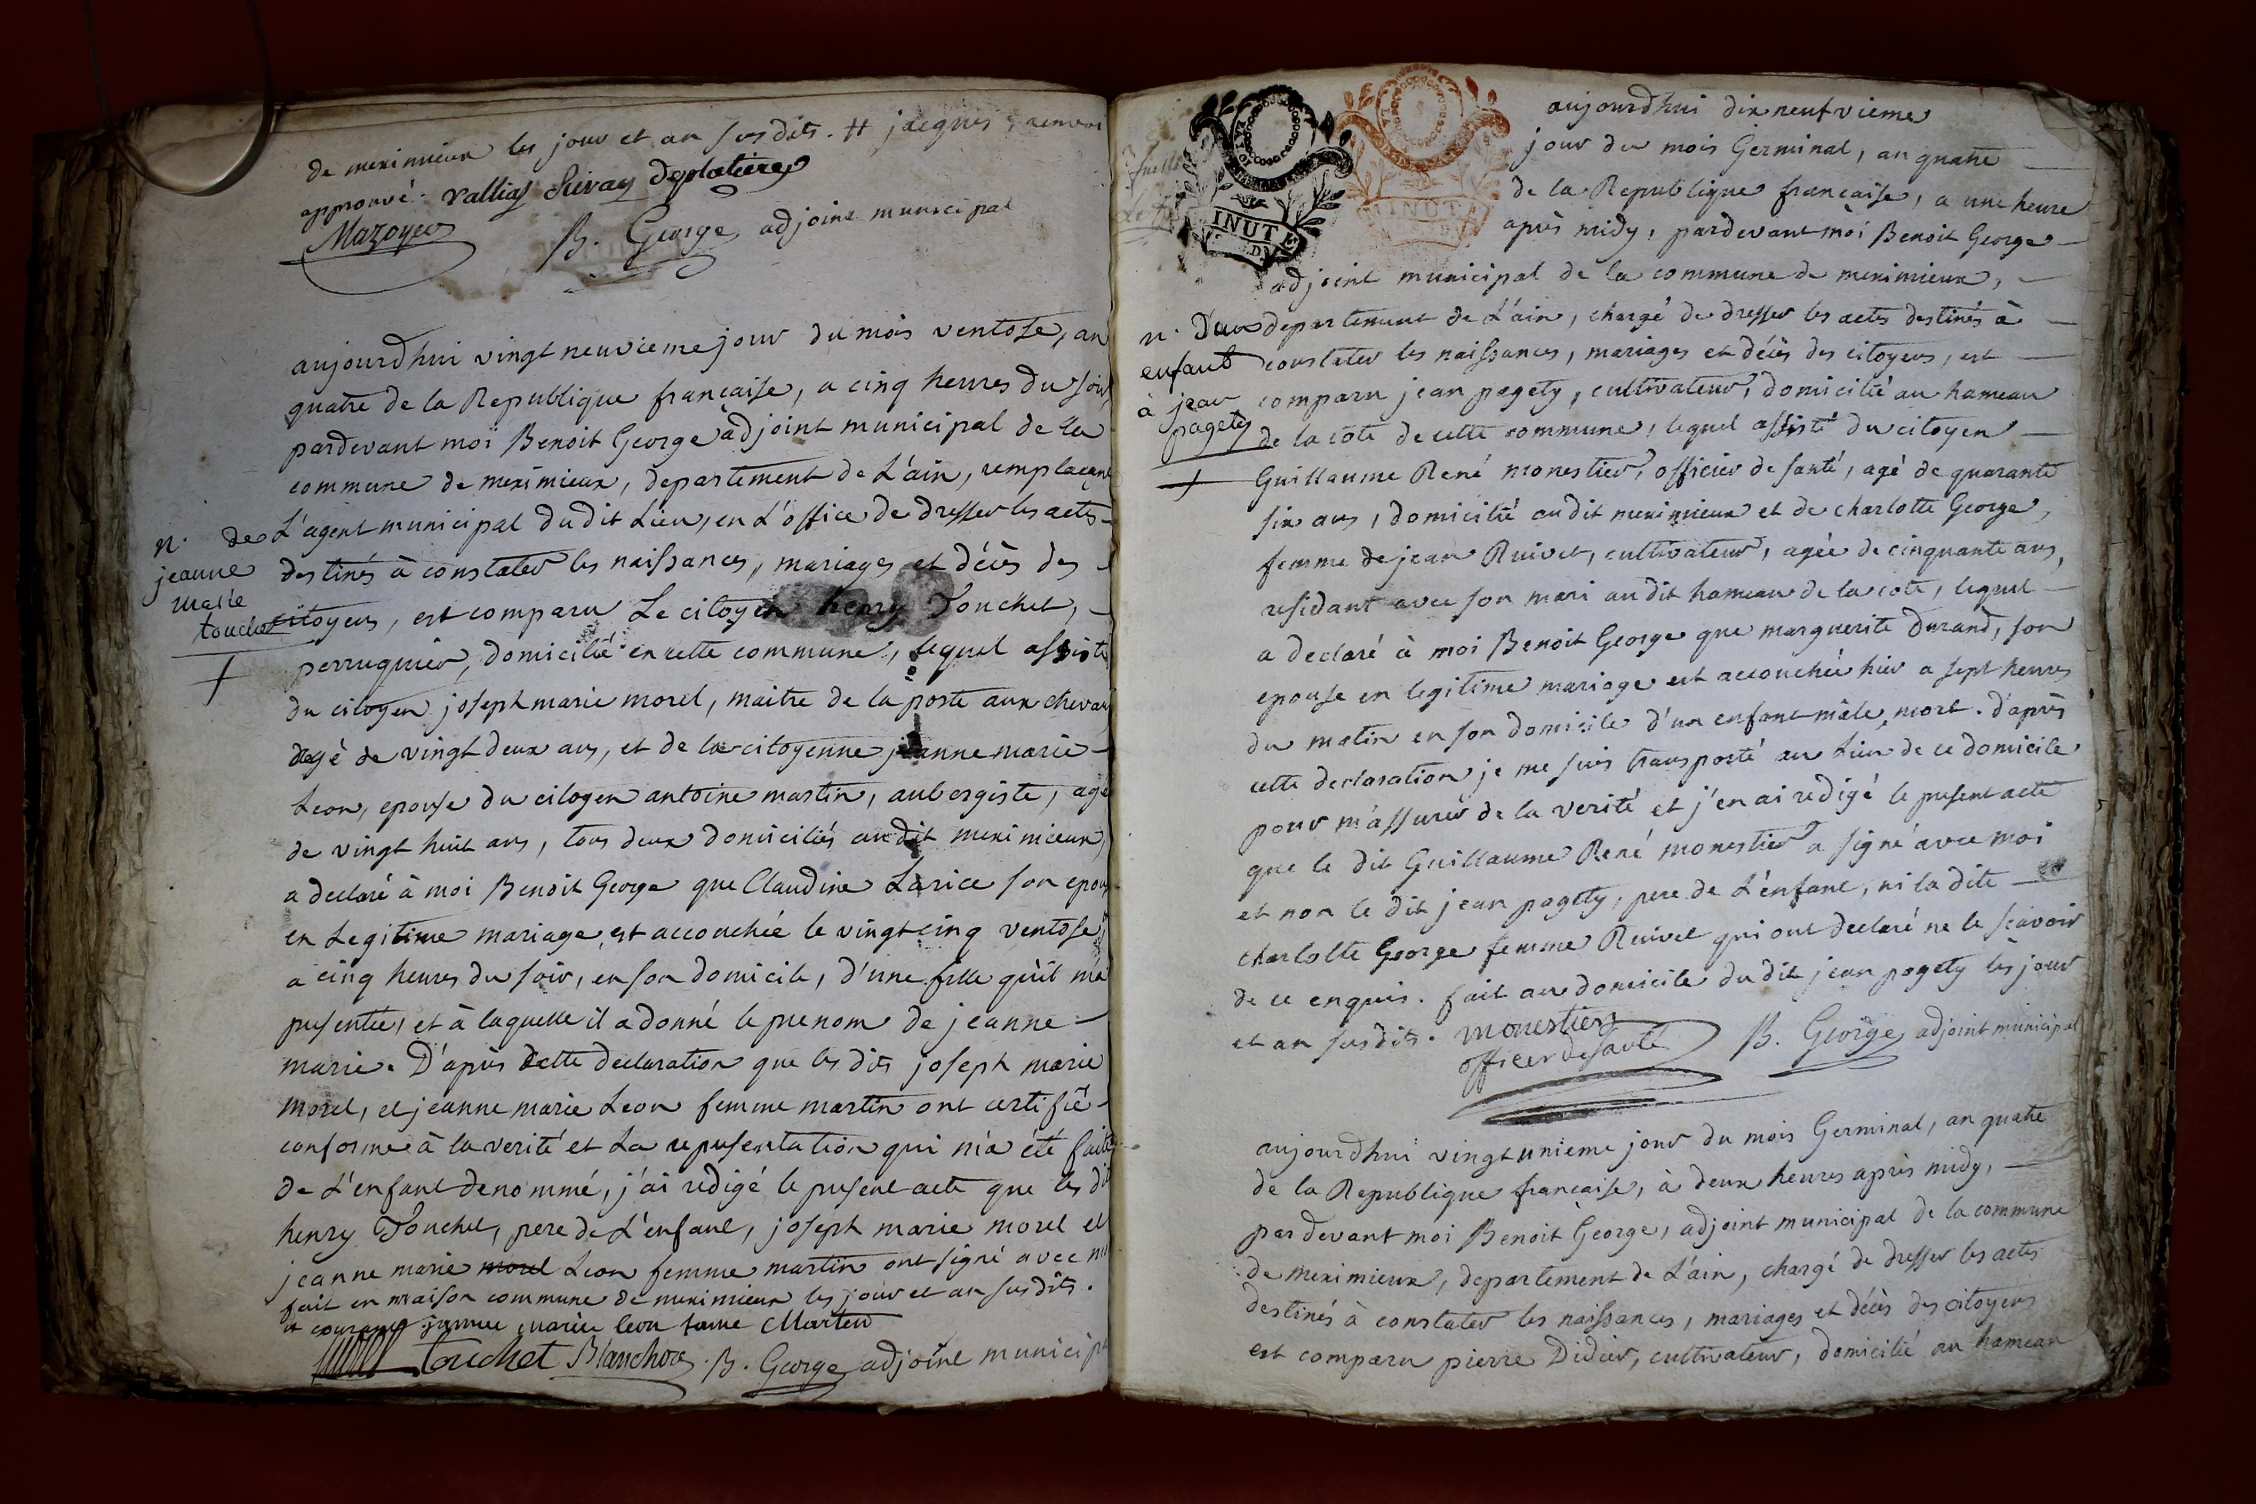 de meximieux les jour et an susdits. # jacques, renvoi
approuvé. Vallias Sivan Deplatiere
Mazoyer
B. George adjoint municipal
aujourdhui vingt neuvieme jour du mois ventose, an
quatre de la Republique française, a cinq heures du soir,
pardevant moi Benoit George adjoint municipal de la
commune de meximieux, departement de L'ain, remplaçant
L'agent municipal dudit Lieu, en L'office de dresser les actes
destinés à constater les naissances, mariages et décès des
citoyens, est comparu Le citoyen henry Touchet,
perruquier, domicilié en cette commune, lequel assisté
du citoyen joseph marie morel, maitre de la poste aux chevaux
agé de vingt deux ans, et de la citoyenne jeanne marie
Leon, epouse du citoyen antoine martin, aubergiste, agé
de vingt huit ans, tous deux domiciliés audit meximieux,
a declaré à moi Benoit George que Claudine Larice son epouse
en Legitime mariage est accouchée le vingt cinq ventose,
a cinq heures du soir, en son domicile, d'une fille qu'il m'a
presentée, et à laquelle il a donné le prenom de jeanne
marie. D'après cette declaration que les dits joseph marie
morel, et jeanne marie Leon femme martin ont certifié
conforme à la verité et La representation qui m'a été faite
de L'enfant denommé, j'ai redigé le present acte que les dits
henry Touchet, pere de L'enfant, joseph marie morel et
jeanne marie morel Leon femme martin ont signé avec moi
fait en maison commune de meximieux les jour et an susdits.
jeanne marie leon fame Marten
touchet Blanchon. B. George adjoint municipal
n. de
jeanne
marie
touchet
aujourdhui dix neufvieme
jour du mois Germinal, an quatre
de la Republique française, a une heure
après midy, pardevant moi Benoit George
adjoint municipal de la commune de meximieux,
departement de L'ain, chargé de dresser les actes destinés à
constater les naissances, mariages et décès des citoyens, est
comparu jean pagety, cultivateur, domicilié au hameau
de la cote de cette commune, lequel assisté du citoyen
Guillaume René monestier, officier de santé, agé de quarante
six ans, domicilié audit meximieux et de charlotte George,
femme de jean Ruivet, cultivateur, agée de cinquante ans,
residant avec son mari audit hameau de la cote, lequel
a declaré à moi Benoit George que marguerite Durand, son
epouse en legitime mariage est accouchée hier a sept heures
du matin en son domicile d'un enfant mâle mort. d'après
cette declaration je me suis transporté au Lieu de ce domicile
pour m'assurer de la verité et j'en ai redigé le present acte
que le dit Guillaume René monestier a signé avec moi
et non le dit jean pagety, pere de L'enfant, ni la dite
charlotte George femme Ruivet qui ont declaré ne le scavoir
de ce enquis. fait au domicile du dit jean pagety les jour
et an susdits. monestier
officer de santé
B. George, adjoint municipal
n. D'un
enfant
à jean
pagety
INUTE
INUTE
aujourdhui vingt unieme jour du mois Germinal, an quatre
de la Republique française, à deux heures après midy,
pardevant moi Benoit George, adjoint municipal de la commune
de meximieux, departement de L'ain, chargé de dresser les actes
destinés à constater les naissances, mariages et décès des citoyens
est comparu pierre Didier, cultivateur, domicilié au hameau